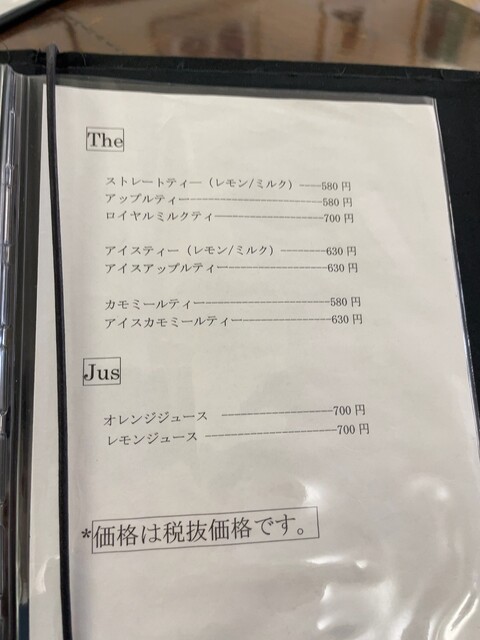 The
ストレートティー（レモン/ミルク）-----580 円
アップルティー--------------------------580 円
ロイヤルミルクティ---------------------700 円
アイスティー（レモン/ミルク）---------630 円
アイスアップルティー--------------------630 円
カモミールティー------------------------580 円
アイスカモミールティー-----------------630 円
Jus
オレンジジュース ---------------------700 円
レモンジュース -------------------------700 円
*価格は税抜価格です。